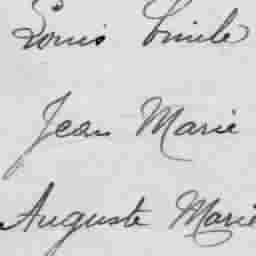 Louis Emile
Jean Marie
Auguste Marie